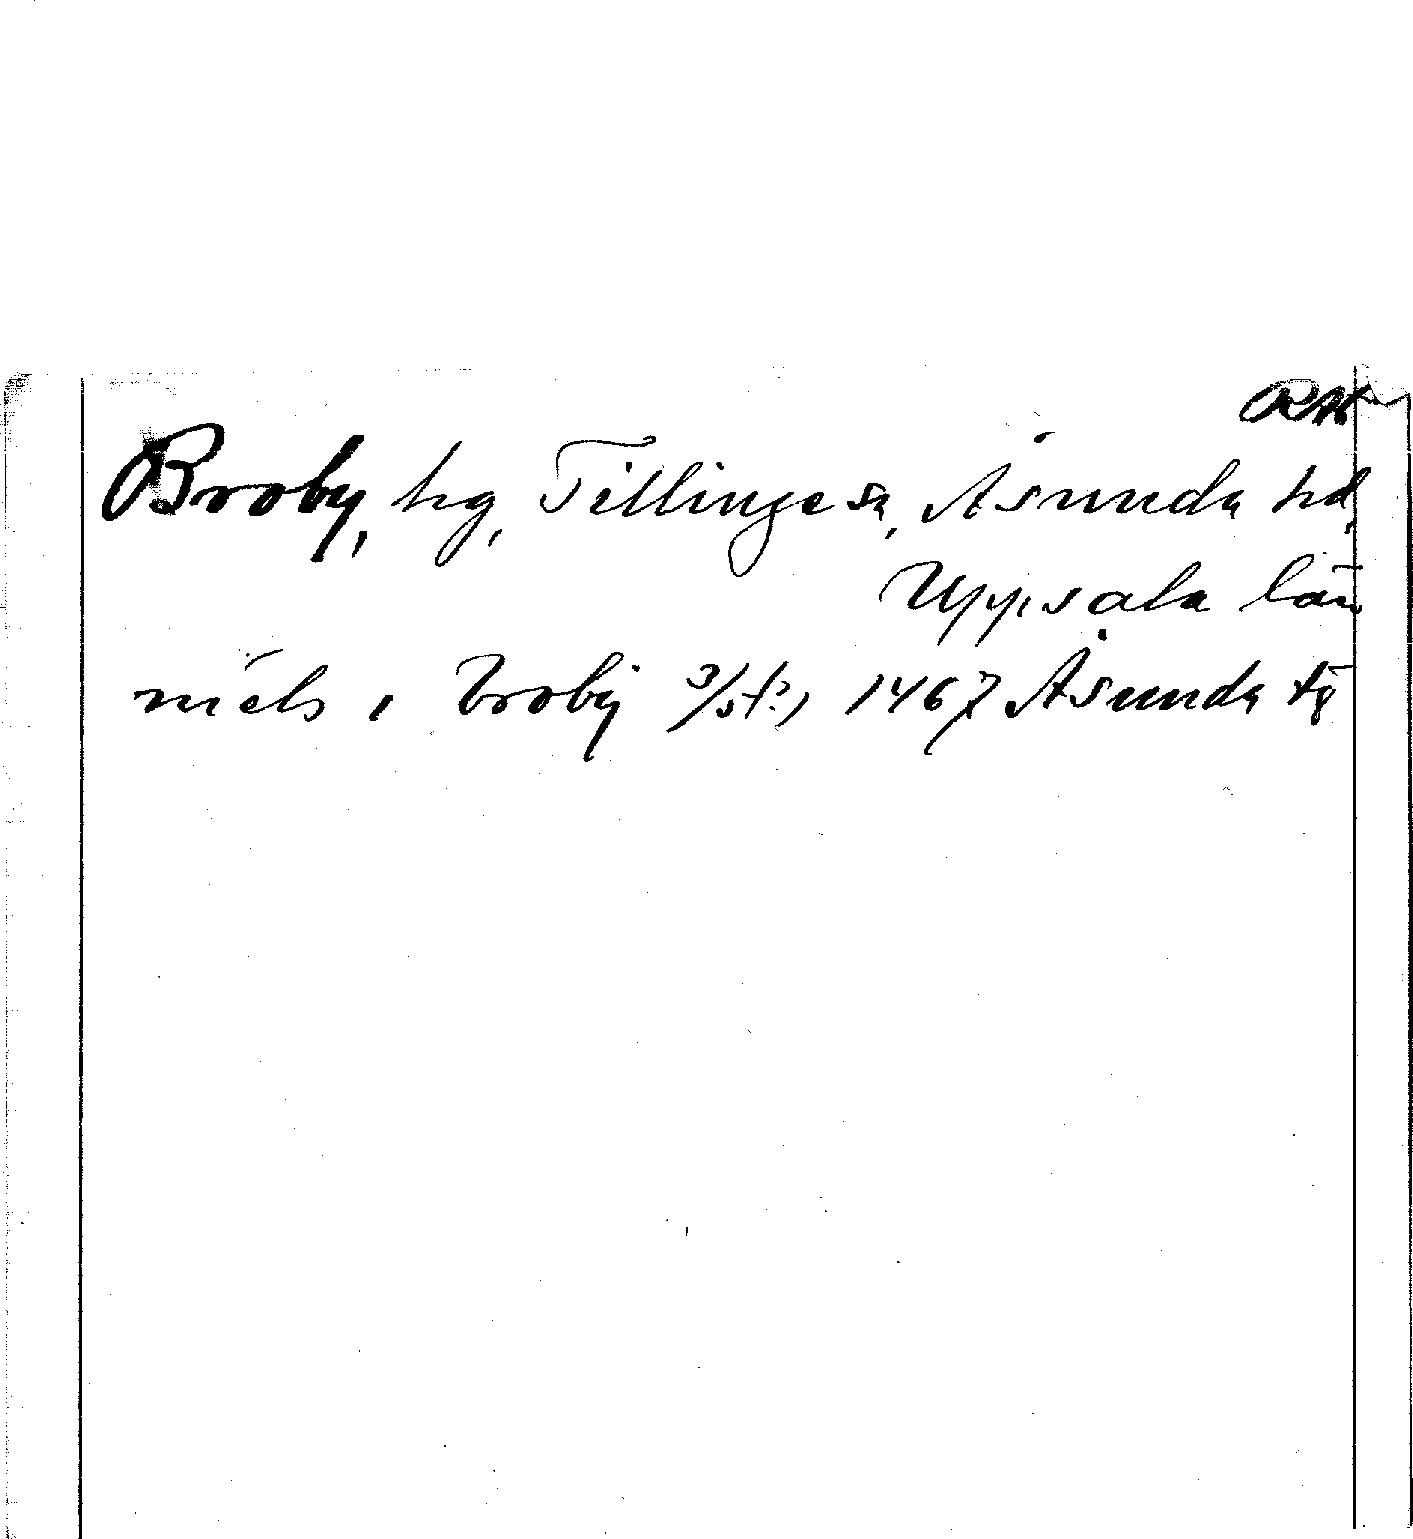 Broby, hg, Tillinge sn, Åsunda hd,
Uppsala län
niels i broby 1467 Åsunda tg